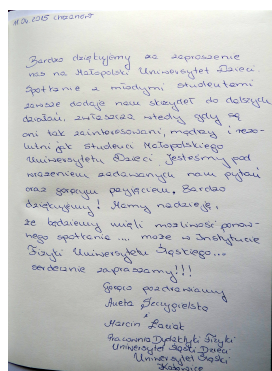 11.04.2015 Chrzanów
Bardzo dziękujemy za zaproszenie
nas na Małopolski Uniwersytet Dzieci.
Spotkanie z młodymi studentami
zawsze dodaje nam skrzydeł do dalszych
działań, zwłaszcza wtedy gdy są
oni tak zainteresowani, mądrzy i rezo-
lutni jak studenci Małopolskiego
Uniwersytetu Dzieci. Jesteśmy pod
wrażeniem zadawanych nam pytań
oraz gorącym przyjęciem. Bardzo
dziękujemy! Mamy nadzieję,
że będziemy mieli możliwość ponow-
nego spotkania .... może w Instytucie
Fizyki Uniwersytetu Śląskiego...
serdecznie zapraszamy!!!
Gorąco pozdrawiamy
Aneta Szczygielska
i
Marcin Łaciak
Pracownia Dydaktyki Fizyki
Uniwersytet Śląski Dzieci
Uniwersytet Śląski
Katowice